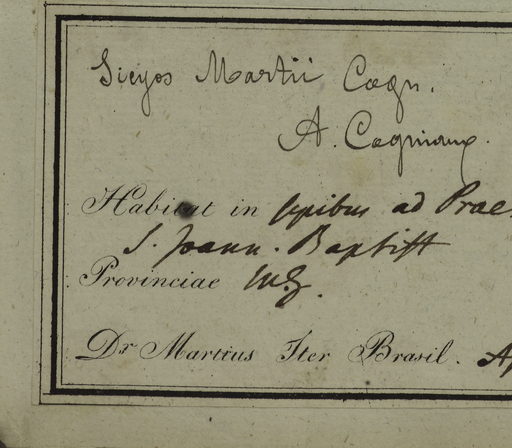 Sicyos Martii Cogn.
A. Cogniaux.
Habitat in sepibus ad Prae
S. Joann. Baptist
Provinciae M.G.
Dr Martius Iter Brasil. Ap